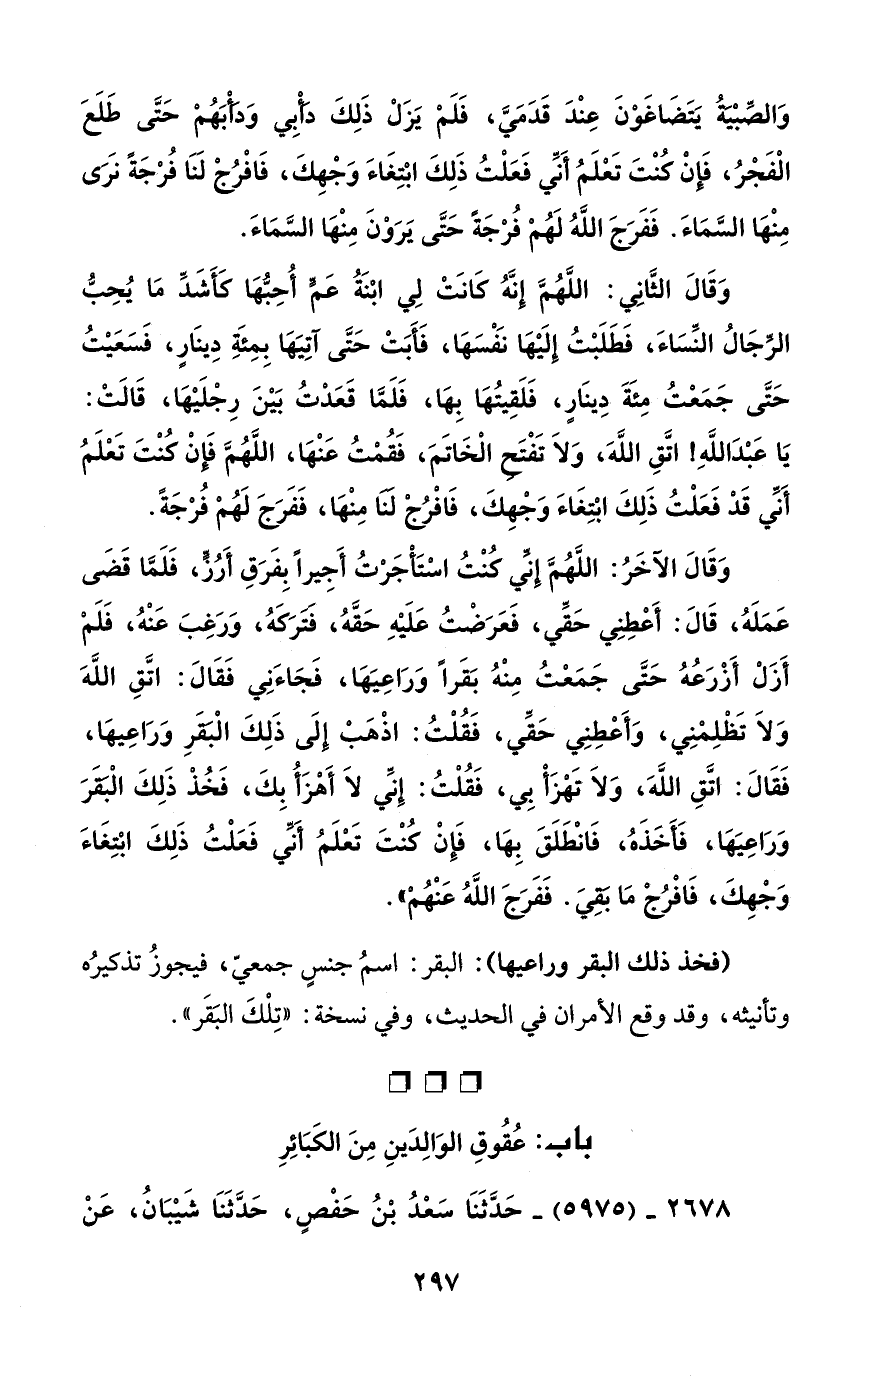 وَالصِّبْيَةُ يَتَضَاغَوْنَ عِنْدَ قَدَمَيَّ، فَلَمْ يَزَلْ ذَلِكَ دَأْبِي وَدَأْبَهُمْ حَتَّى طَلَعَ
الْفَجْرُ، فَإِنْ كُنْتَ تَعْلَمُ أَنِّي فَعَلْتُ ذَلِكَ ابْتِغَاءَ وَجْهِكَ، فَافْرُجْ لَنَا فُرْجَةً نَرَى
مِنْهَا السَّمَاءَ. فَفَرَجَ اللَّهُ لَهُمْ فُرْجَةً حَتَّى يَرَوْنَ مِنْهَا السَّمَاءَ.
وَقَالَ الثَّانِي: اللَّهُمَّ إِنَّهُ كَانَتْ لِي ابْنَةُ عَمٍّ أُحِبُّهَا كَأَشَدِّ مَا يُحِبُّ
الرِّجَالُ النِّسَاءَ، فَطَلَبْتُ إِلَيْهَا نَفْسَهَا، فَأَبَتْ حَتَّى آتِيَهَا بِمِئَةِ دِينَارٍ، فَسَعَيْتُ
حَتَّى جَمَعْتُ مِئَةَ دِينَارٍ، فَلَقِيتُهَا بِهَا، فَلَمَّا قَعَدْتُ بَيْنَ رِجْلَيْهَا، قَالَتْ:
يَا عَبْدَاللَّهِ! اتَّقِ اللَّهَ، وَلاَ تَفْتَحِ الْخَاتَمَ، فَقُمْتُ عَنْهَا، اللَّهُمَّ فَإِنْ كُنْتَ تَعْلَمُ
أَنِّي قَدْ فَعَلْتُ ذَلِكَ ابْتِغَاءَ وَجْهِكَ، فَافْرُجْ لَنَا مِنْهَا، فَفَرَجَ لَهُمْ فُرْجَةً.
وَقَالَ الآخَرُ: اللَّهُمَّ إِنِّي كُنْتُ اسْتَأْجَرْتُ أَجِيراً بِفَرَقِ أَرُزٍّ، فَلَمَّا قَضَى
عَمَلَهُ، قَالَ: أَعْطِنِي حَقِّي، فَعَرَضْتُ عَلَيْهِ حَقَّهُ، فَتَرَكَهُ، وَرَغِبَ عَنْهُ، فَلَمْ
أَزَلْ أَزْرَعُهُ حَتَّى جَمَعْتُ مِنْهُ بَقَراً وَرَاعِيَهَا، فَجَاءَنِي فَقَالَ: اتَّقِ اللَّهَ
وَلاَ تَظْلِمْنِي، وَأَعْطِنِي حَقِّي، فَقُلْتُ: اذْهَبْ إِلَى ذَلِكَ الْبَقَرِ وَرَاعِيهَا،
فَقَالَ: اتَّقِ اللَّهَ، وَلاَ تَهْزَأْ بِي، فَقُلْتُ: إِنِّي لاَ أَهْزَأُ بِكَ، فَخُذْ ذَلِكَ الْبَقَرَ
وَرَاعِيَهَا، فَأَخَذَهُ، فَانْطَلَقَ بِهَا، فَإِنْ كُنْتَ تَعْلَمُ أَنِّي فَعَلْتُ ذَلِكَ ابْتِغَاءَ
وَجْهِكَ، فَافْرُجْ مَا بَقِيَ. فَفَرَجَ اللَّهُ عَنْهُمْ».
(فخذ ذلك البقر وراعيها): البقر: اسمُ جنسٍ جمعيّ، فيجوزُ تذكيرُه
وتأنيثه، وقد وقع الأمران في الحديث، وفي نسخة: «تِلْكَ البَقَر».
باب: عُقُوقِ الوَالِدَينِ مِنَ الكَبَائِرِ
٢٦٧٨ ـ (٥٩٧٥) ـ حَدَّثَنَا سَعْدُ بْنُ حَفْصٍ، حَدَّثَنَا شَيْبَانُ، عَنْ
٢٩٧